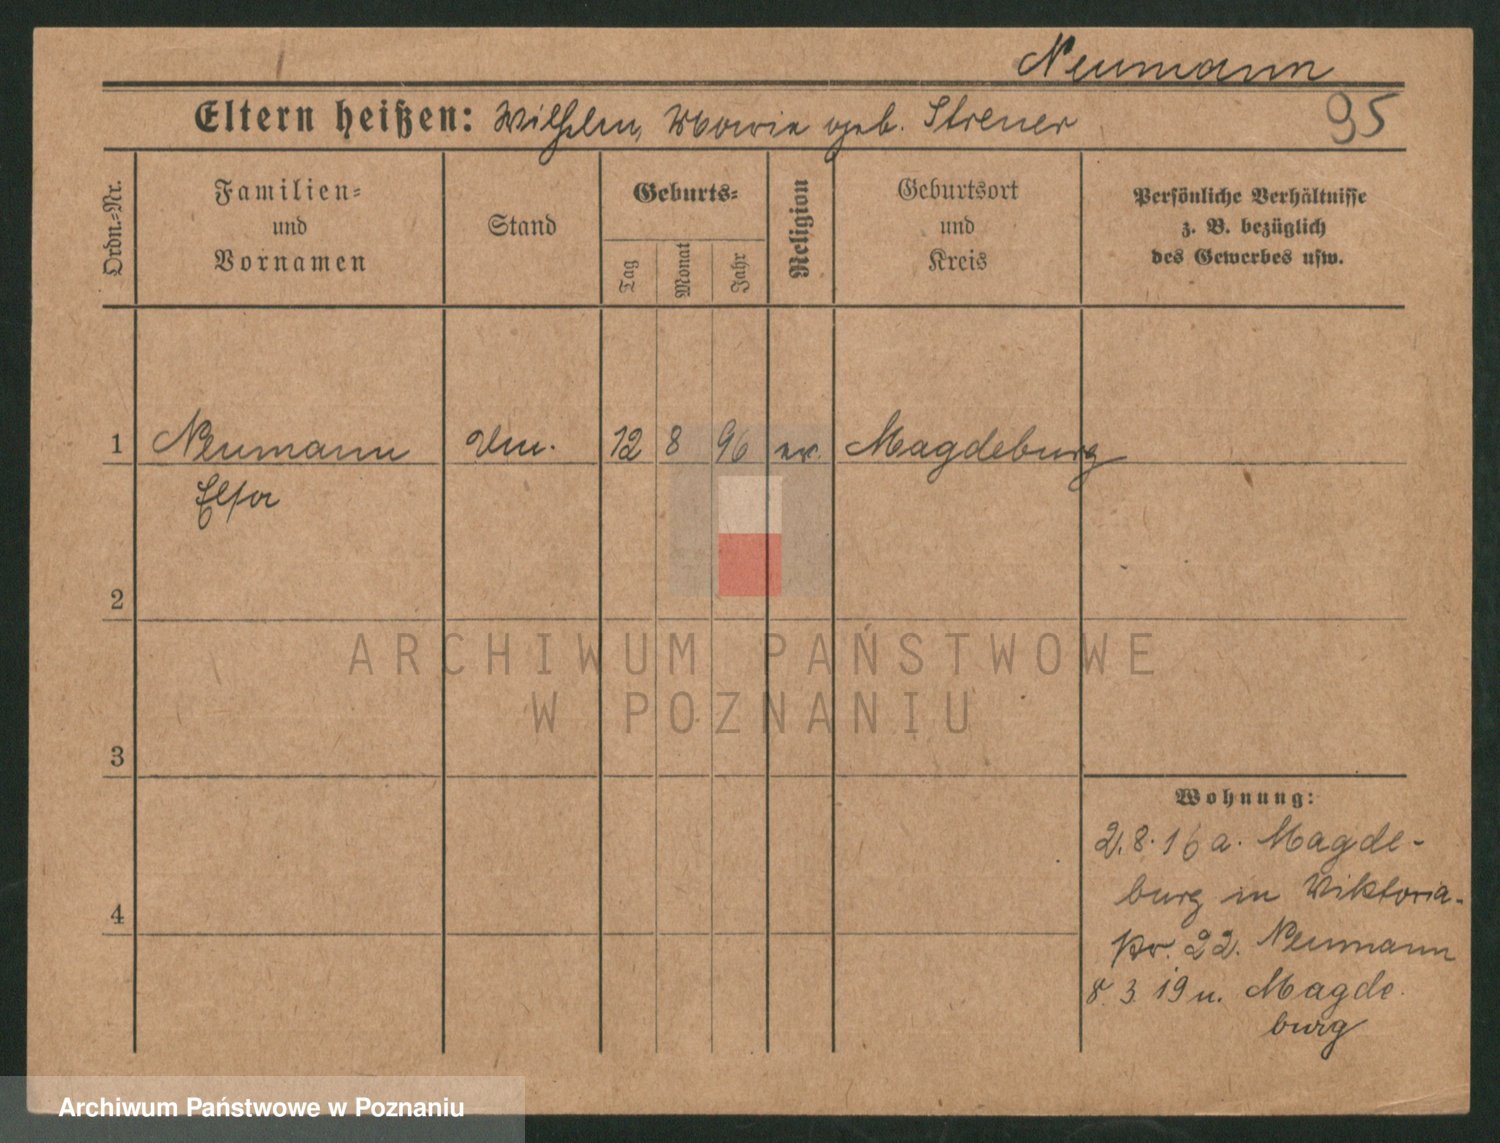 Neumann
95
Eltern heißen: Wilhelm, Marie geb. Strener
Ordn.-Nr.
Familien-
und
Vornamen
Stand
Geburts-
Tag
Monat
Jahr
Religion
Geburtsort
und
Kreis
Persönliche Verhältnisse
z. B. bezüglich
des Gewerbes usw.
1 Neumann 12 8 96 ev. Magdeburg
Elsa
2
ARCHIWUM PAŃSTWOWE
W POZNANIU
3
Wohnung:
2.8.16 a. Magde-
burg in Viktoria-
22. Neumann
4
8. 3 19 u. Magde
burg
Archiwum Państwowe w Poznaniu